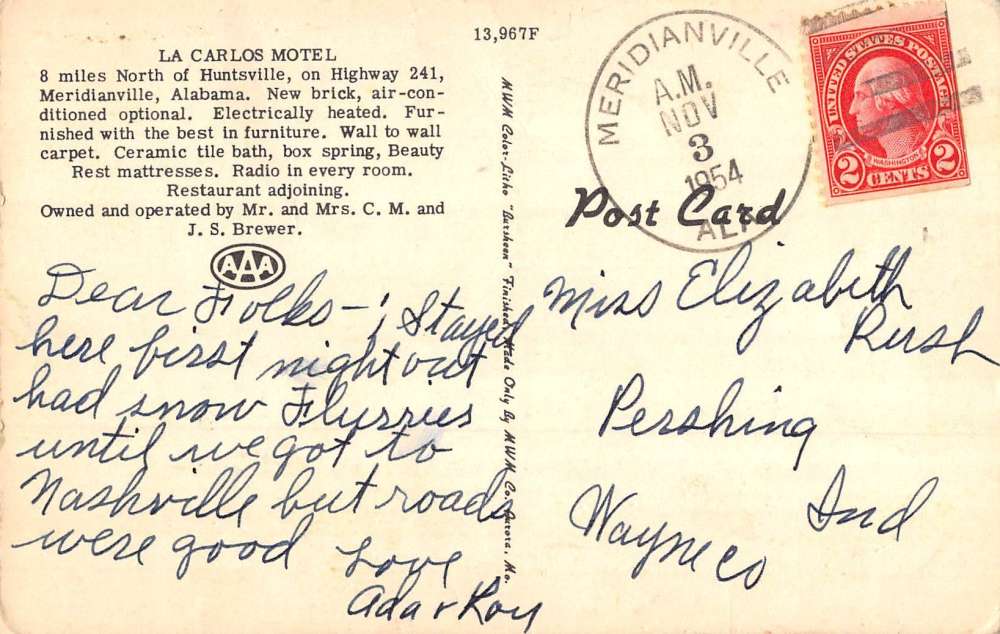 LA CARLOS MOTEL
8 miles North of Huntsville, on Highway 241,
Meridianville, Alabama. New brick, air-con-
ditioned optional. Electrically heated. Fur-
nished with the best in furniture. Wall to wall
carpet. Ceramic tile bath, box spring, Beauty
Rest mattresses. Radio in every room.
Restaurant adjoining.
Owned and operated by Mr. and Mrs. C. M. and
J. S. Brewer.
AAA
Dear Folks - ; Stayed
here first night out
had snow Flurries
until we got to
Nashville but roads
were good Love
Ada & Roy
13,967F
MWM Color-Litho "Dursheen" Finished, Made Only By MWM Co., Aurora, Mo.
MERIDIANVILLE
A.M.
NOV
3
1954
ALA
UNITED STATES POSTAGE
WASHINGTON
2 CENTS 2
Post Card
Miss Elizabeth
Rush
Pershing
Wayne co Ind